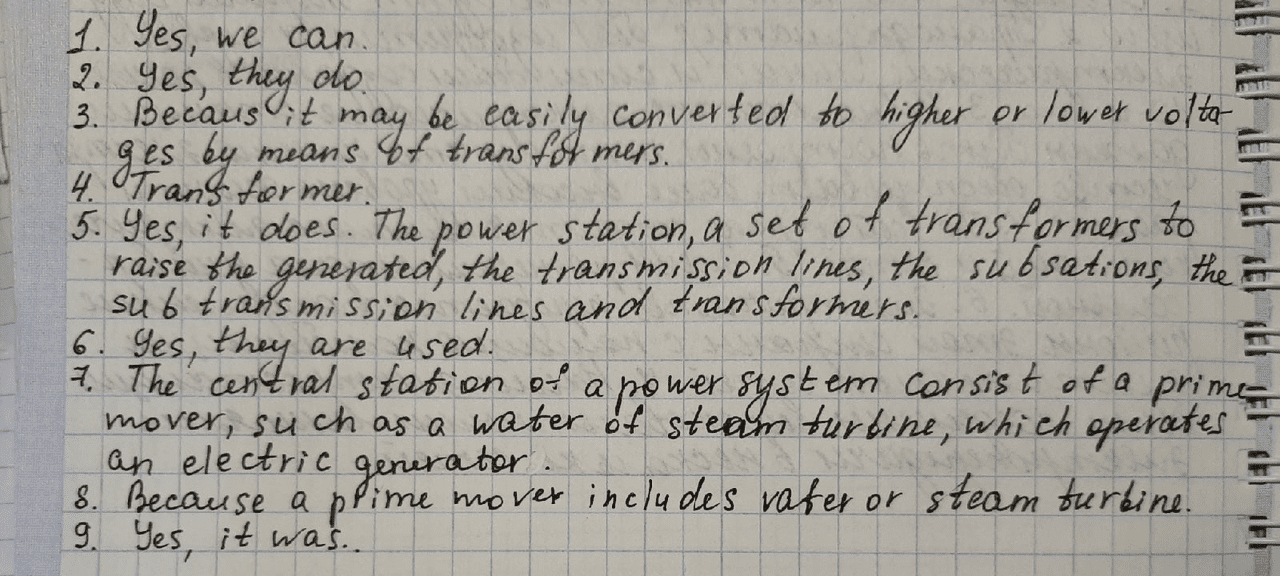 1. Yes, we can.
2. Yes, they do.
3. Becaus it may be easily converted to higher or lower volta-
ges by means of transformers.
4. Transformer.
5. Yes, it does. The power station, a set of transformers to
raise the generated, the transmission lines, the subsations, the
sub transmission lines and transformers.
6. Yes, they are used.
7. The central station of a power system consist of a prime
mover, such as a water of steam turbine, which operates
an electric generator.
8. Because a prime mover includes vater or steam turbine.
9. Yes, it was..